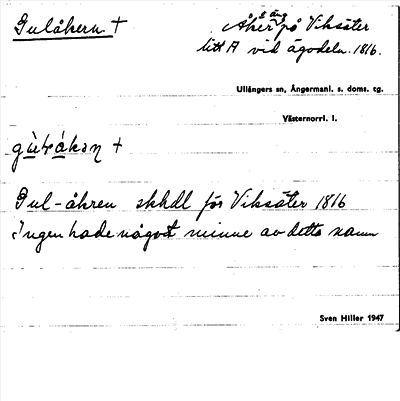 Gulåkern +
& äng
Åker på Viksäter
litt A vid ägodeln. 1816.
Ullångers sn, Ångermanl. s. doms. tg.
Västernorrl. l.
+
Gul-åkren skhdl för Viksäter 1816
Ingen hade något minne av detta namn
Sven Hiller 1947